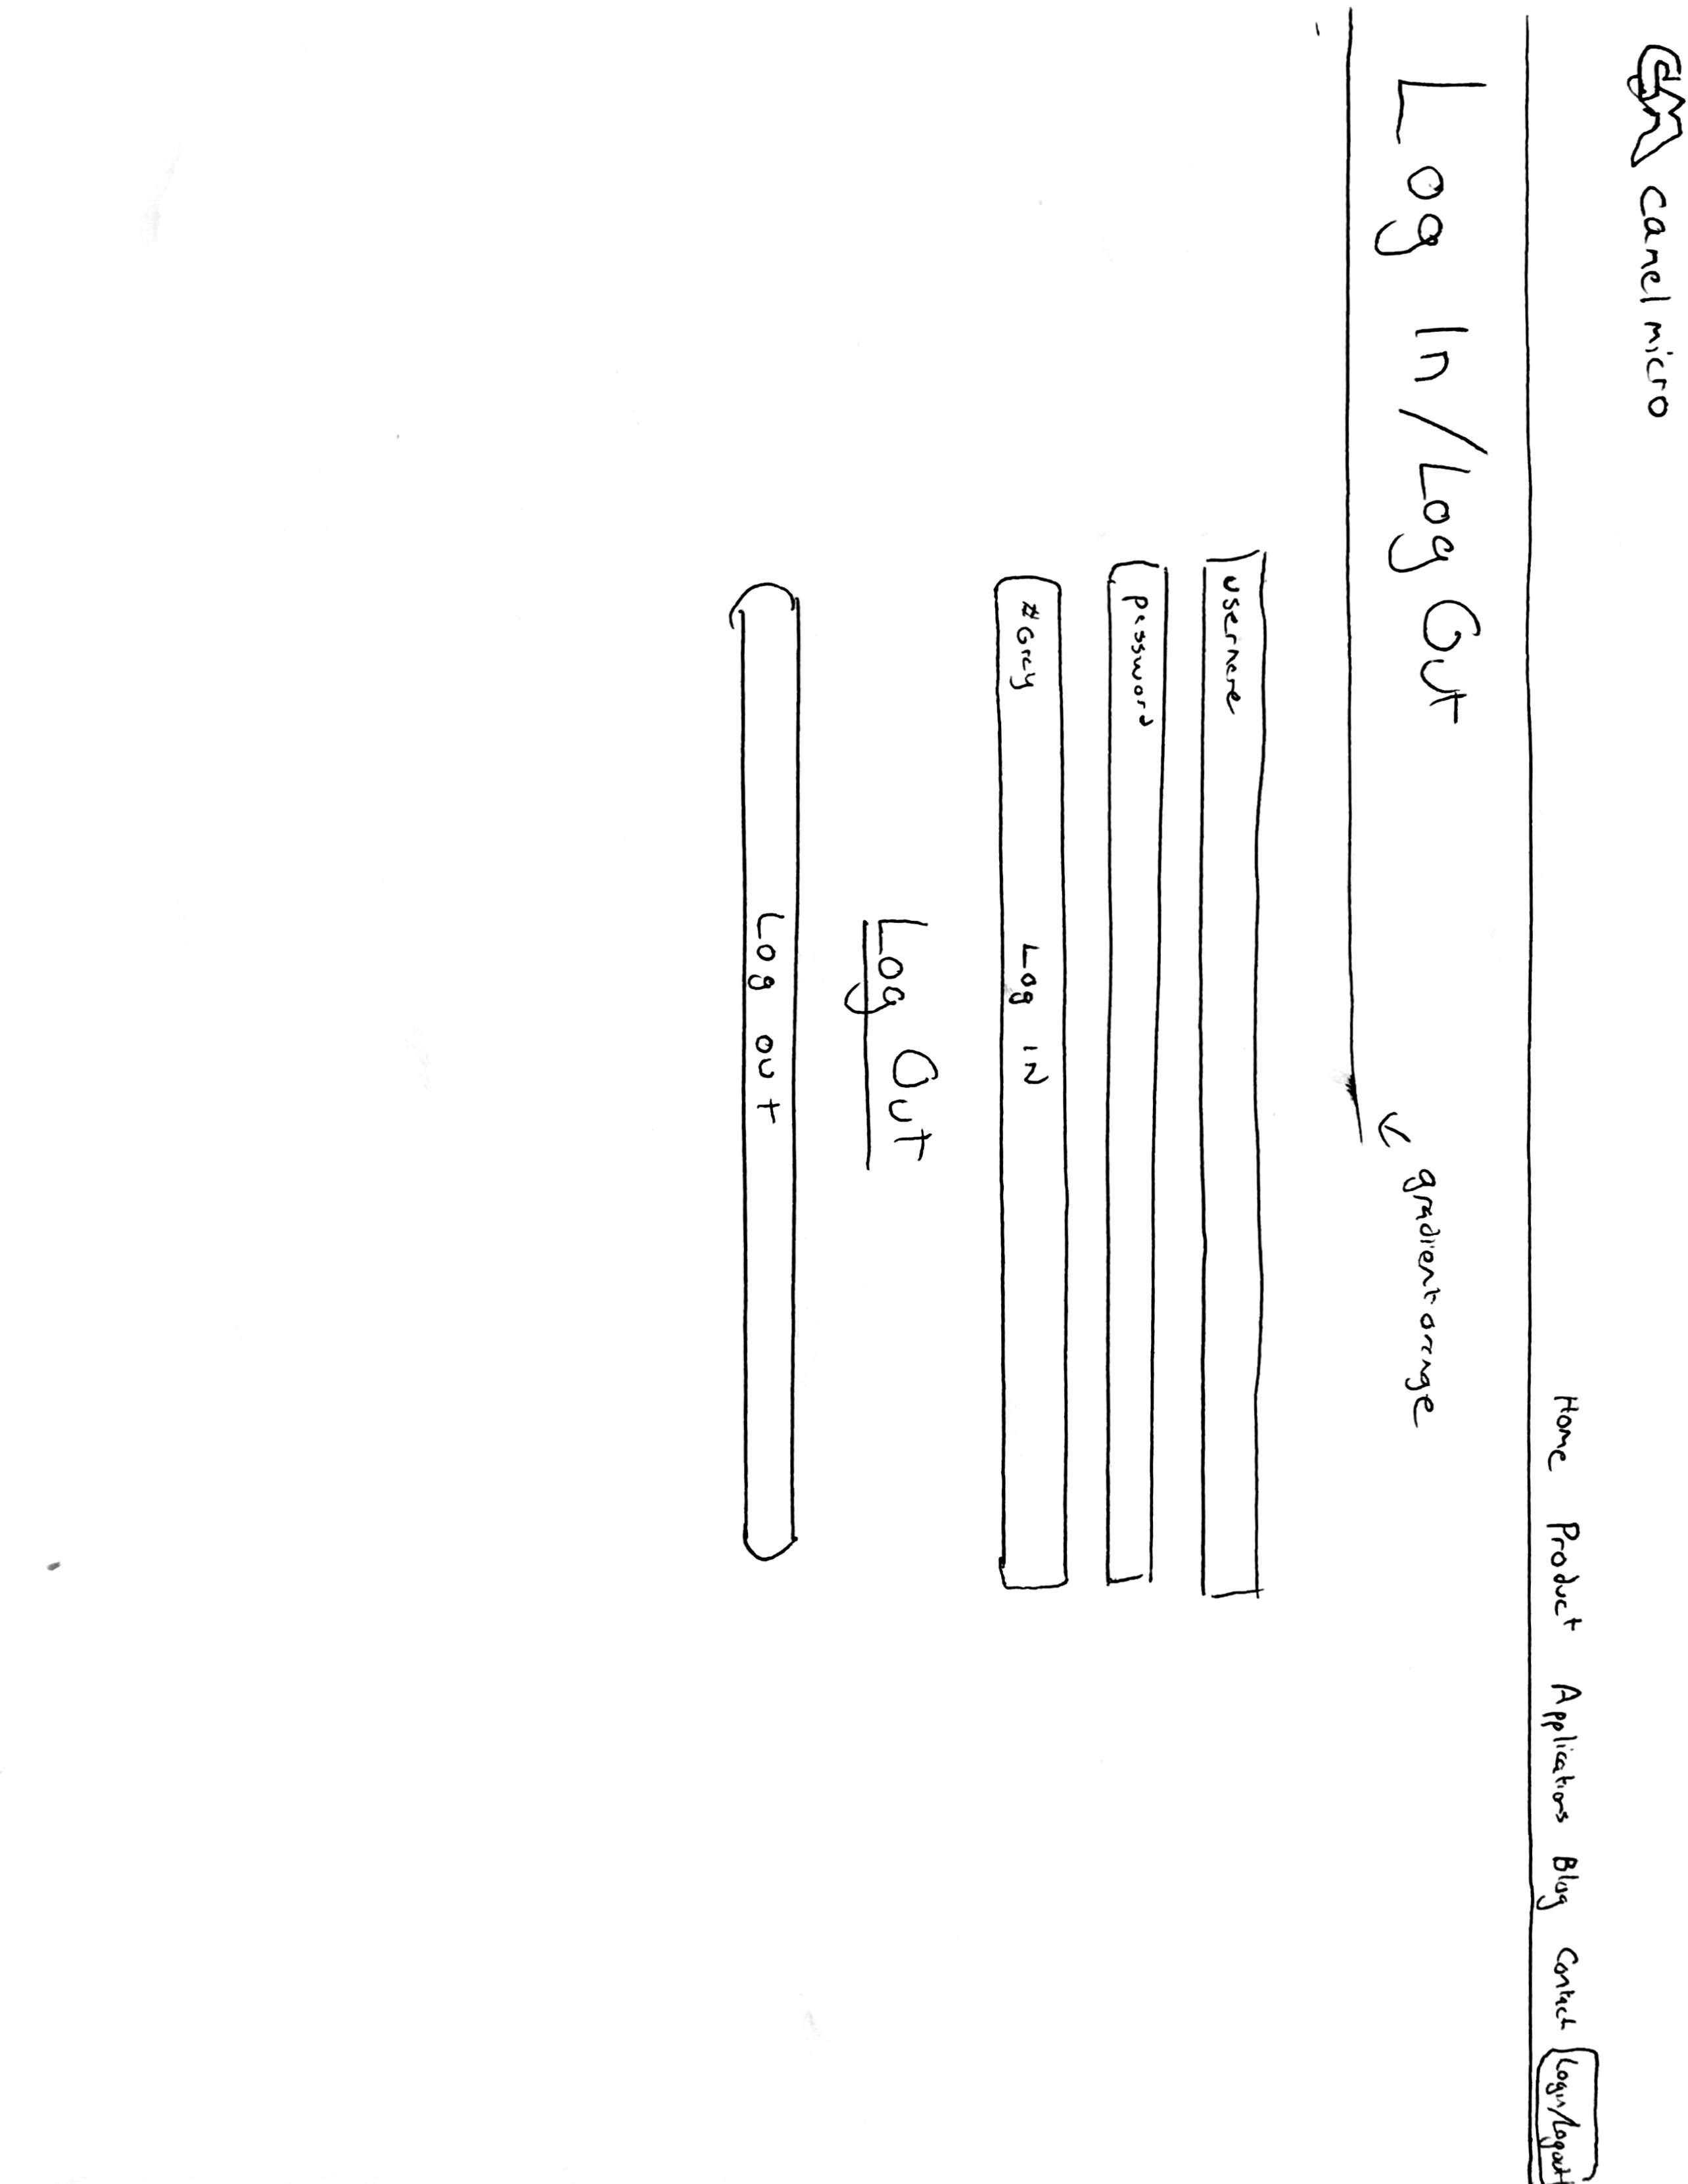 CM camel micro
Home Product Applications Blog Contact Login/Logout
Log In/Log Out
gradient orange
username
password
#Grey Log IN
Log Out
Log out